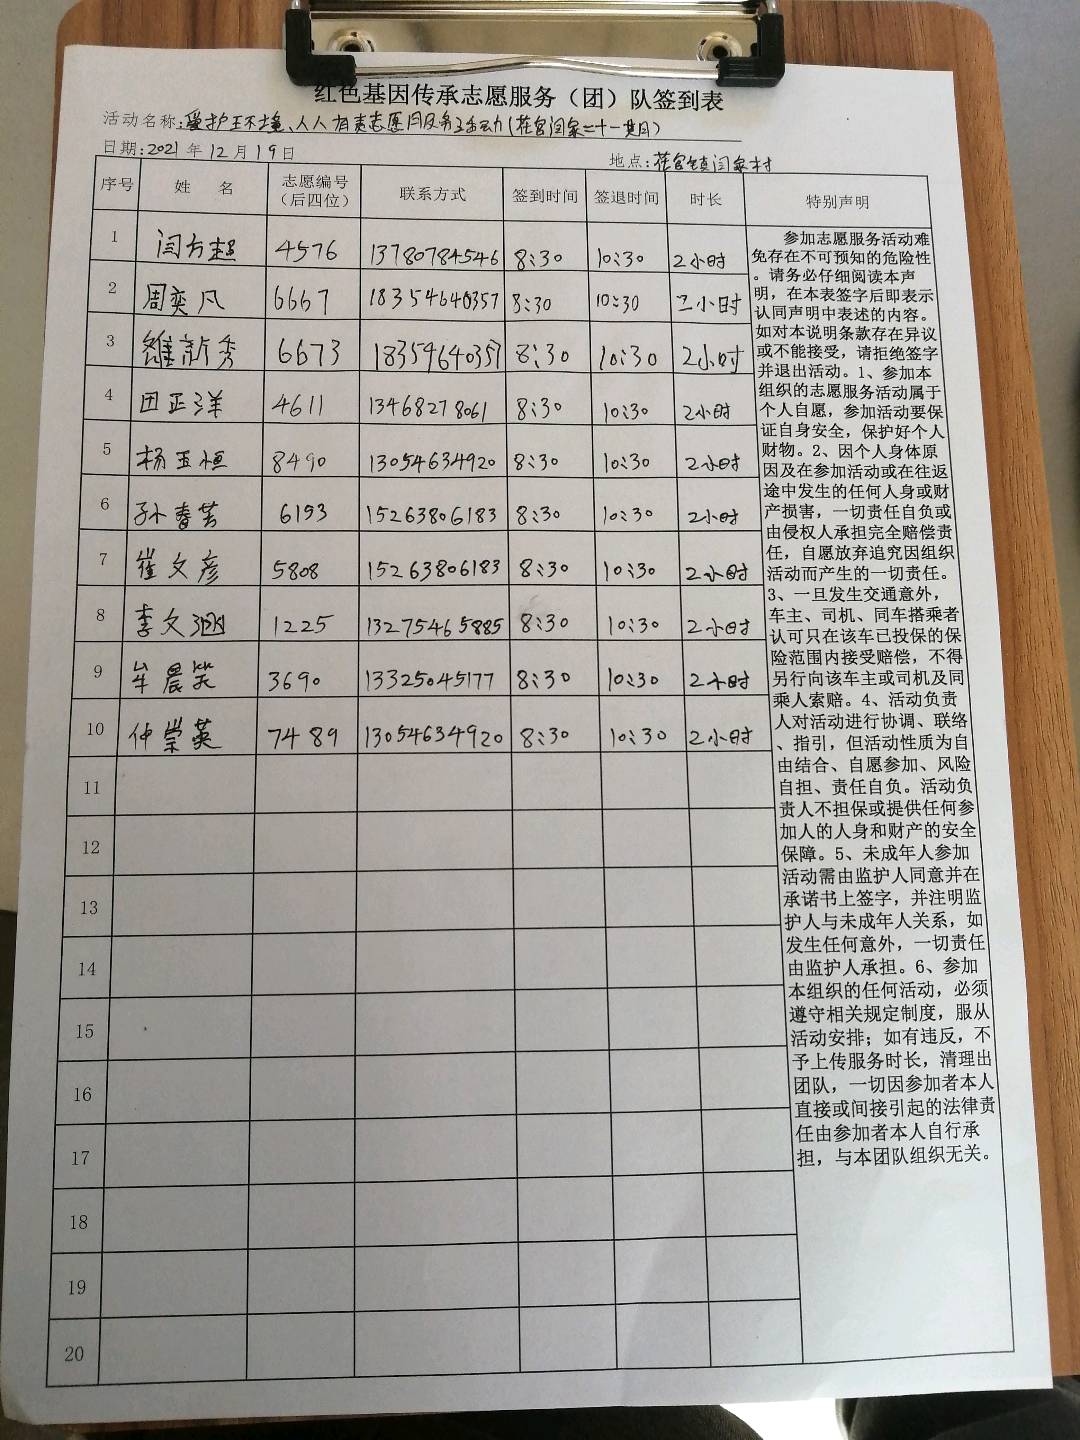 红色基因传承志愿服务（团）队签到表
活动名称:爱护环境、人人有责志愿服务活动(花官闫家二十一期)
日期:2021年12月19日 地点:花官镇闫家村
序号 姓 名 志愿编号（后四位） 联系方式 签到时间 签退时间 时长 特别声明
1 闫方超 4576 13780784546 8:30 10:30 2小时
2 周奕凡 6667 18354640357 8:30 10:30 二小时
3 新秀 6673 18354640357 8:30 10:30 2小时
4 田正洋 4611 13468278061 8:30 10:30 2小时
5 杨玉恒 8490 13054634920 8:30 10:30 2小时
6 孙春芸 6193 15263806183 8:30 10:30 2小时
7 崔文彦 5808 15263806183 8:30 10:30 2小时
8 李文涵 1225 13275465885 8:30 10:30 2小时
9 牟晨笑 3690 13325045177 8:30 10:30 2小时
10 仲崇英 7489 13054634920 8:30 10:30 2小时
11
12
13
14
15
16
17
18
19
20
参加志愿服务活动难
免存在不可预知的危险性
。请务必仔细阅读本声
明，在本表签字后即表示
认同声明中表述的内容。
如对本说明条款存在异议
或不能接受，请拒绝签字
并退出活动。1、参加本
组织的志愿服务活动属于
个人自愿，参加活动要保
证自身安全，保护好个人
财物。2、因个人身体原
因及在参加活动或在往返
途中发生的任何人身或财
产损害，一切责任自负或
由侵权人承担完全赔偿责
任，自愿放弃追究因组织
活动而产生的一切责任。
3、一旦发生交通意外，
车主、司机、同车搭乘者
认可只在该车已投保的保
险范围内接受赔偿，不得
另行向该车主或司机及同
乘人索赔。4、活动负责
人对活动进行协调、联络
、指引，但活动性质为自
由结合、自愿参加、风险
自担、责任自负。活动负
责人不担保或提供任何参
加人的人身和财产的安全
保障。5、未成年人参加
活动需由监护人同意并在
承诺书上签字，并注明监
护人与未成年人关系，如
发生任何意外，一切责任
由监护人承担。6、参加
本组织的任何活动，必须
遵守相关规定制度，服从
活动安排；如有违反，不
予上传服务时长，清理出
团队，一切因参加者本人
直接或间接引起的法律责
任由参加者本人自行承
担，与本团队组织无关。